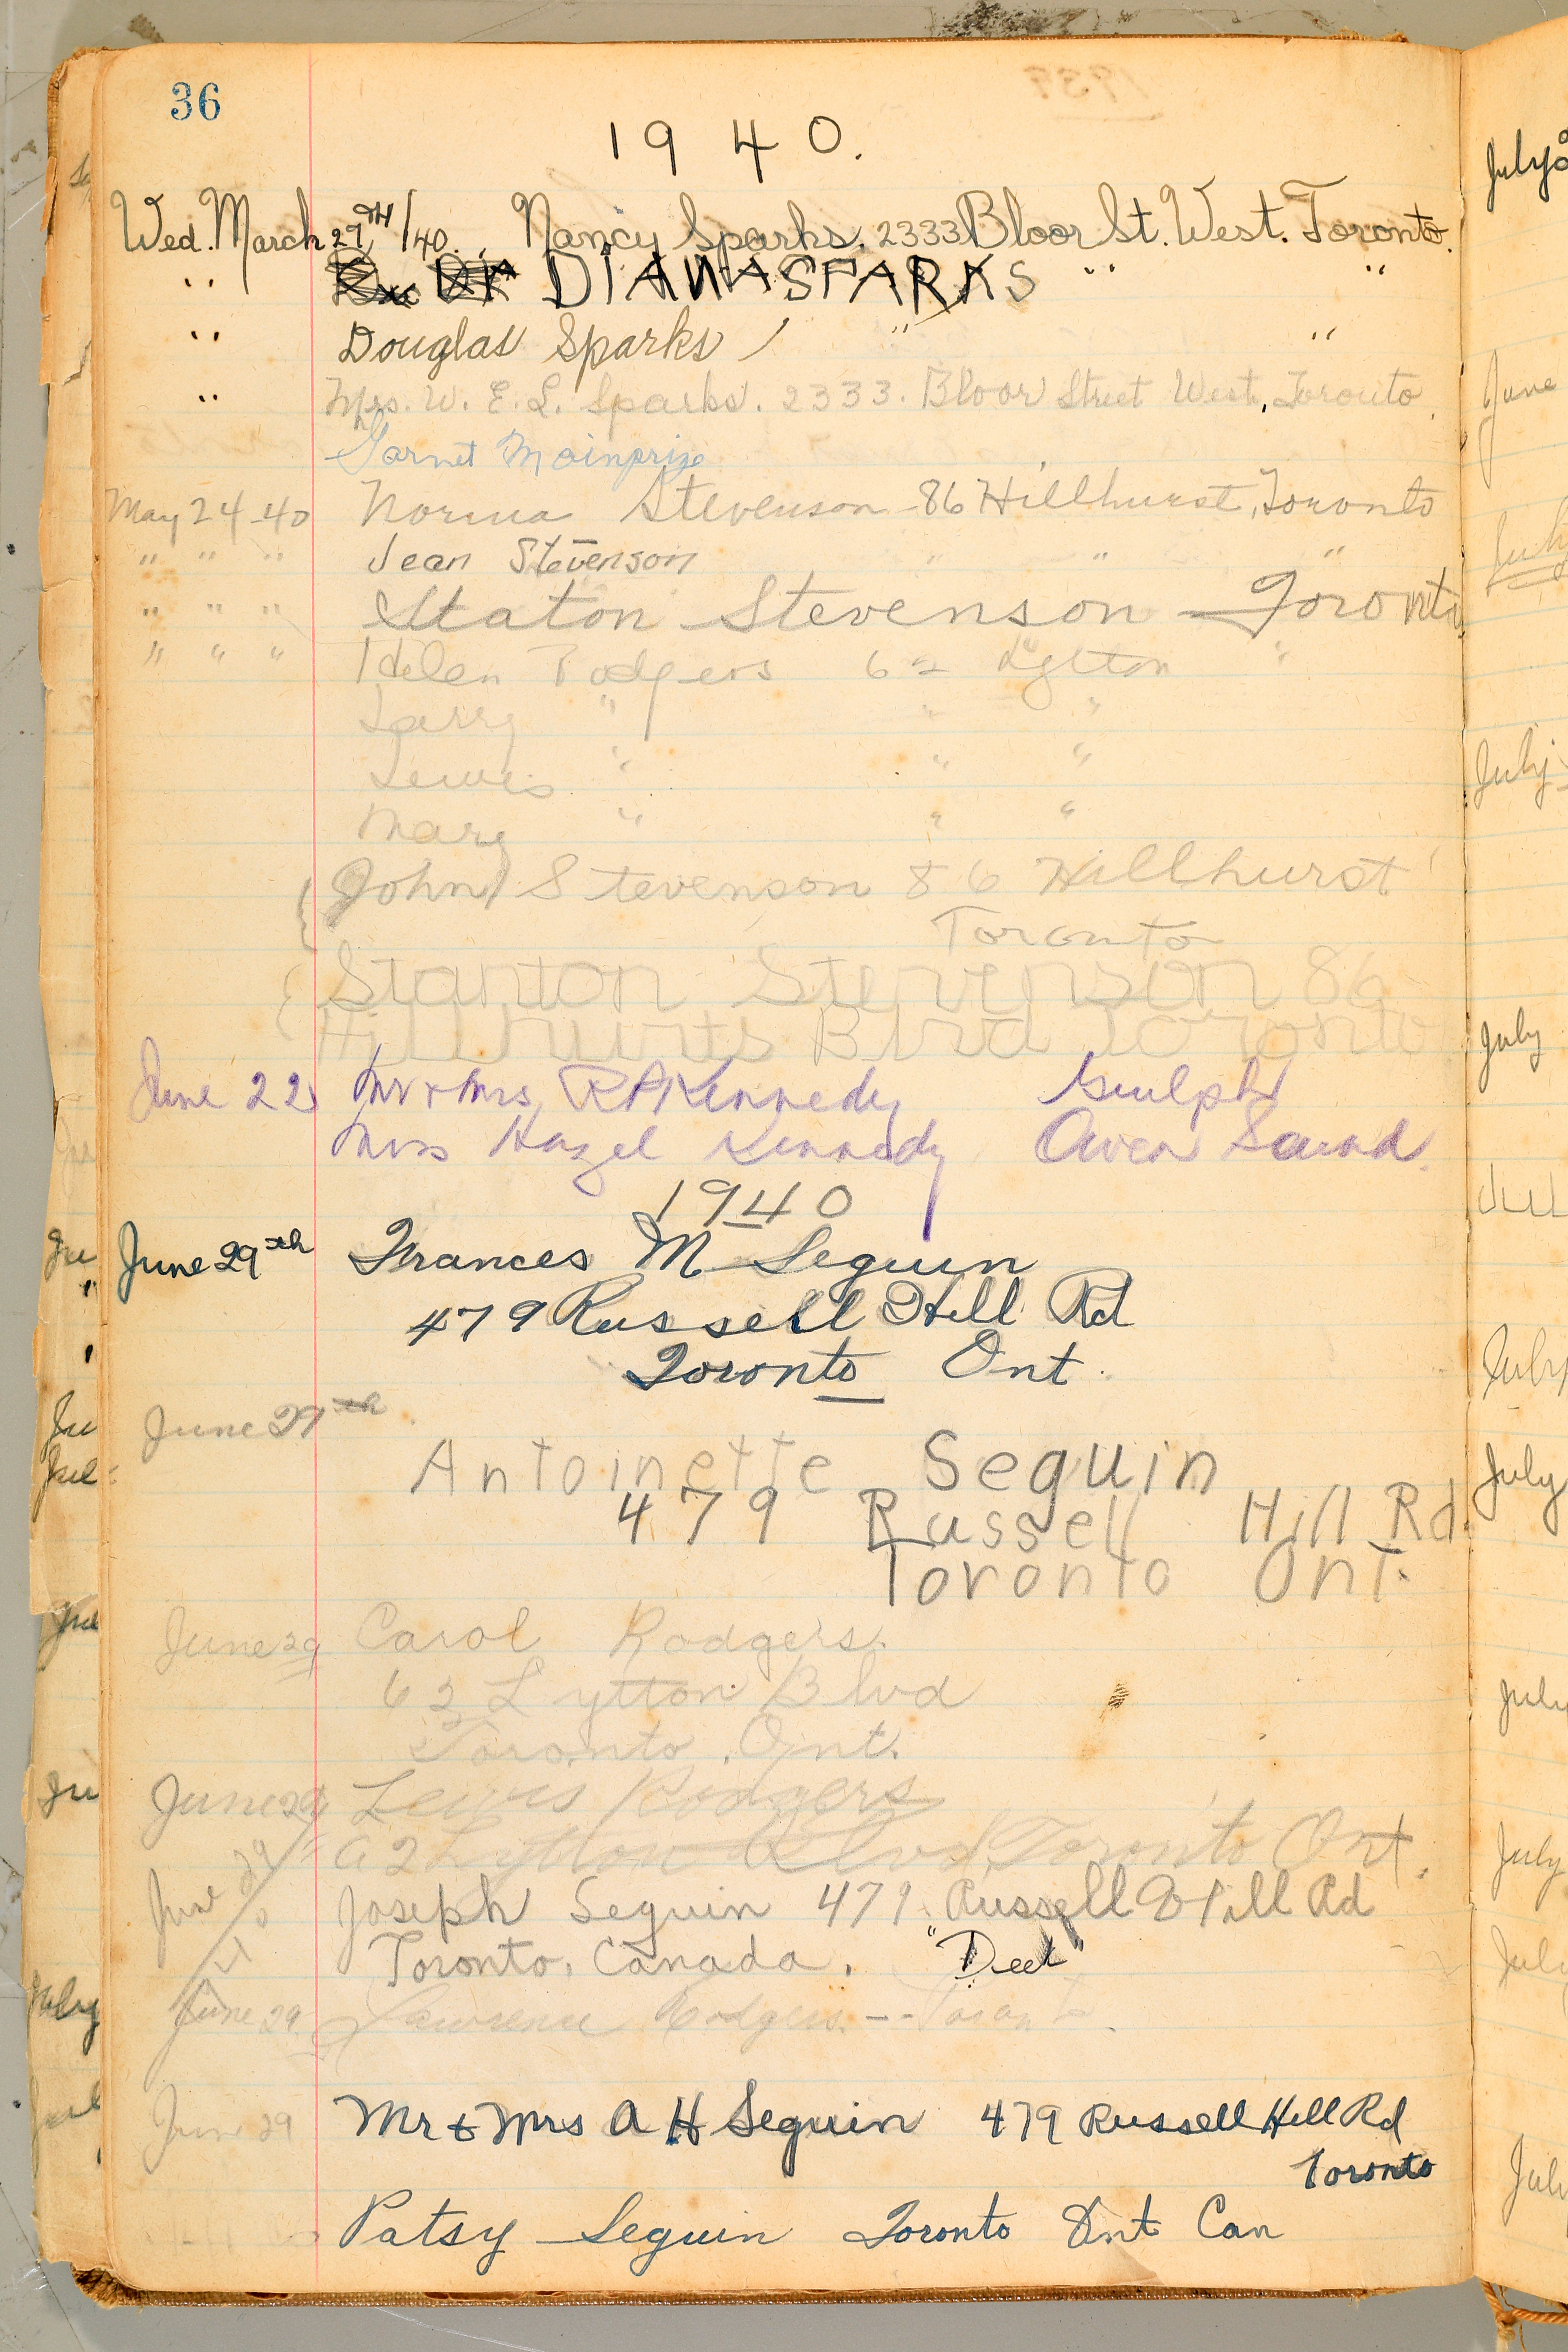 36
1940.
Wed. March 27TH/40. Nancy Sparks. 2333 Bloor St. West. Toronto.
" DIANA SPARKS " "
" Douglas Sparks " "
" Mrs. W. E. L. Sparks. 2333. Bloor Street West, Toronto.
Garnet Mainprize
May 24-40 Norma Stevenson - 86 Hillhurst, Toronto
" " " Jean Stevenson " " "
" " " Staton Stevenson - Toronto
" " " Helen Rodgers 62 Lytton "
Larry " " "
Lewis " " "
Mary " " "
John Stevenson 86 Hillhurst
Toronto
Stanton Stevenson 86
Hillhurts Blvd Toronto
June 22 Mr & Mrs R P Kennedy Guelph
Mrs Hazel Kennedy Owen Sound.
1940
June 29th Frances M Seguin
479 Russell Hill Rd
Toronto Ont.
June 29th
Antoinette Seguin
479 Russell Hill Rd.
Toronto Ont.
June 29 Carol Rodgers.
62 Lytton Blvd
Toronto, Ont.
June 29 Lewis Rodgers
62 Lytton Blvd, Toronto Ont.
June 29/40 Joseph Seguin 479 Russell Hill Rd
Toronto, Canada.
June 29 Lawrence Rodgers -- Toronto.
June 29 Mr & Mrs A H Seguin 479 Russell Hill Rd
Toronto
Patsy Seguin Toronto Ont Can